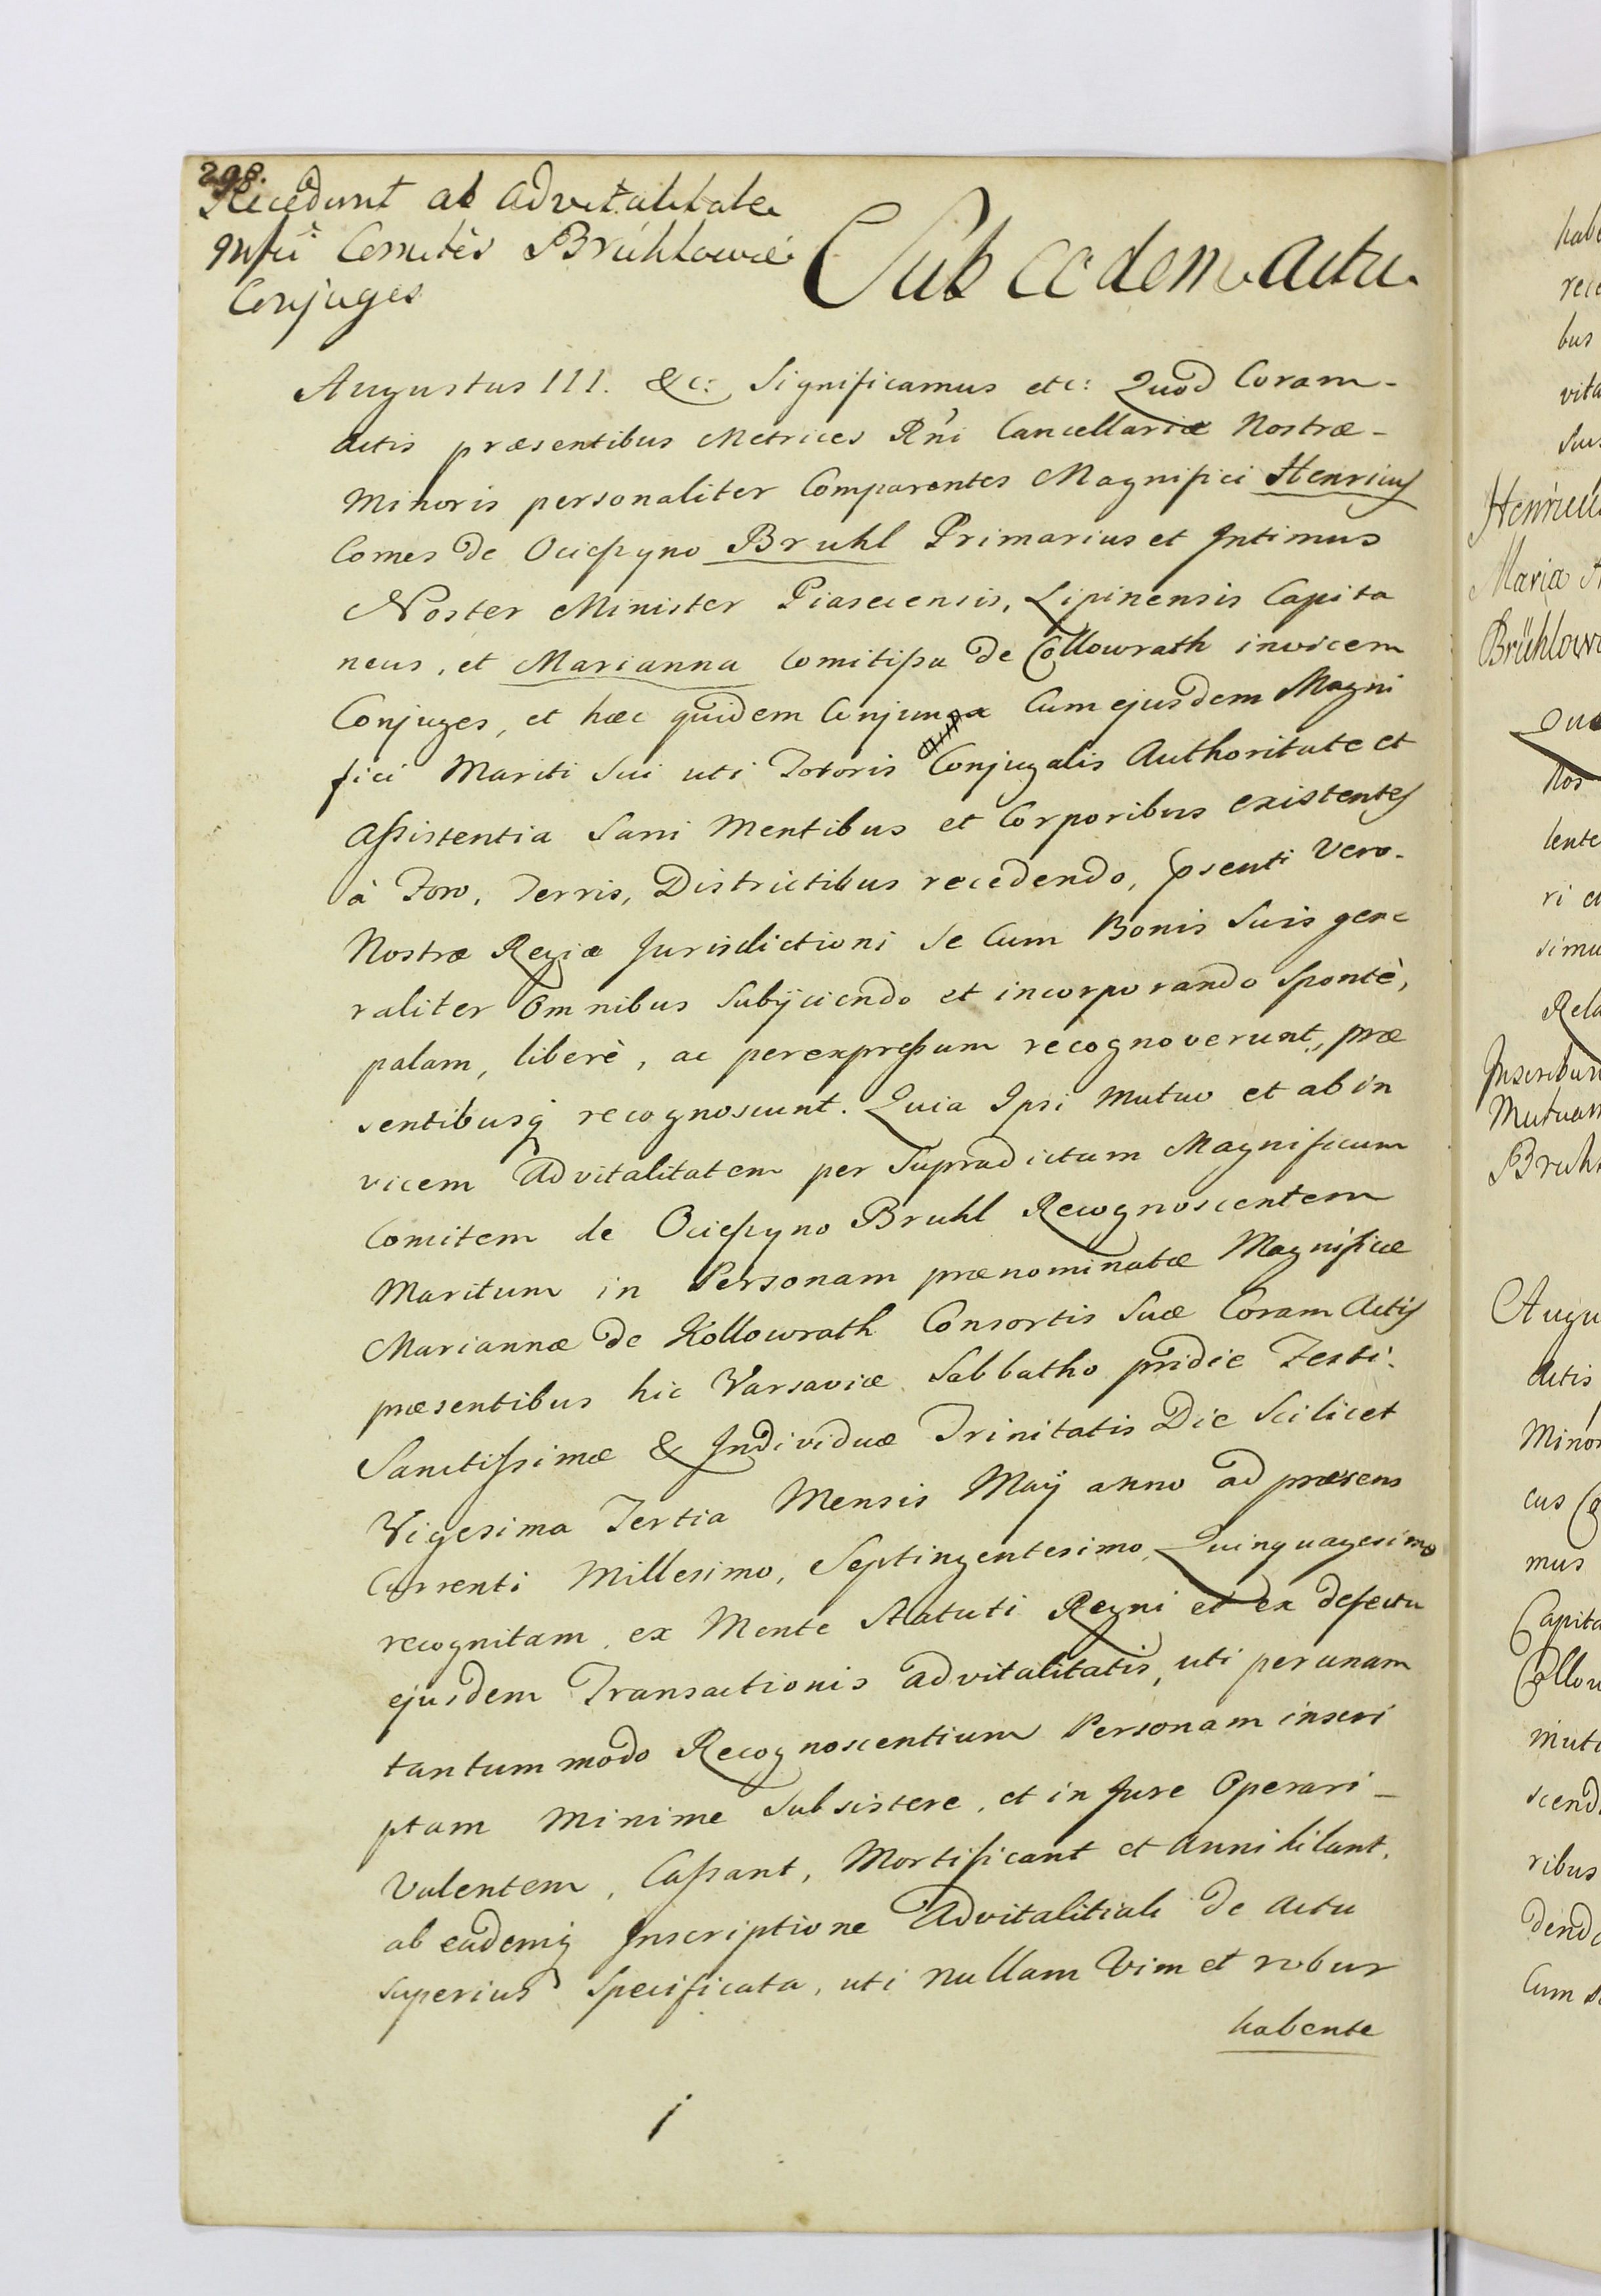 298.
Recedunt ab advitalitate
Mfci Comites Brühlowie
Conjuges
Sub eodem actu
Augustus III. &c: Significamus etc: Quod Coram-
Actis præsentibus Metrices Rni Cancellariæ Nostræ-
Minoris personaliter Comparentes Magnifici Henricus
Comes de Ocieszyno Bruhl Primarius et Intimus
Noster Minister Piasecensis, Lipinensis Capita
neus, et Marianna Comitissa de Collowrath invicem
Conjuges, et hæc quidem Conjunx Cum ejusdem Magni
fici Mariti Sui uti Totoris Conjugalis Authoritate et
Assistentia Sani Mentibus et Corporibus existentes
à Foro, Terris, Districtibus recedendo, psenti Vero-
Nostræ Regiæ Jurisdictioni Se Cum Bonis Suis gene
raliter Omnibus Subijciendo et incorporando Spontè,
palam, liberè, ac perexpressum recognoverunt, præ
sentibusq recognoscunt. Quia Ipsi Mutuo et ab in
vicem Advitalitatem per Supradictum Magnificum
Comitem de Ocieszyno Bruhl Recognoscentem
Maritum in Personam prænominatæ Magnificæ
Mariannæ de Kollowrath Consortis Suæ Coram Actis
præsentibus hic Varsaviæ Sabbatho pridie Festi
Sanctissimæ & Individuæ Trinitatis Die Scilicet
Vigesima Tertia Mensis Maij anno ad præsens
Currenti Millesimo, Septingentesimo, Quinquagesimo
recognitam, ex Mente Statuti Regni et ex defectu
ejusdem Transactionis advitalitatis, uti per unam
tantummodo Recognoscentium Personam inscri
ptam Minime Subsistere, et in Jure Operari-
Valentem, Cassant, Mortificant et Annihilant,
ab eademq Inscriptione Advitalitiali de Actu
superius Specificata, uti nullam Vim et robur
habente
habe
rece
bus
vita
Maria
Brühlow
Quo
Nos
lente
ri
simu
Rela
Inscribun
Mutuam
Bruhl
Augu
Actis
Minor
cus
mus
Capita
Collow
mut
scend
ribus
dendo
Cum